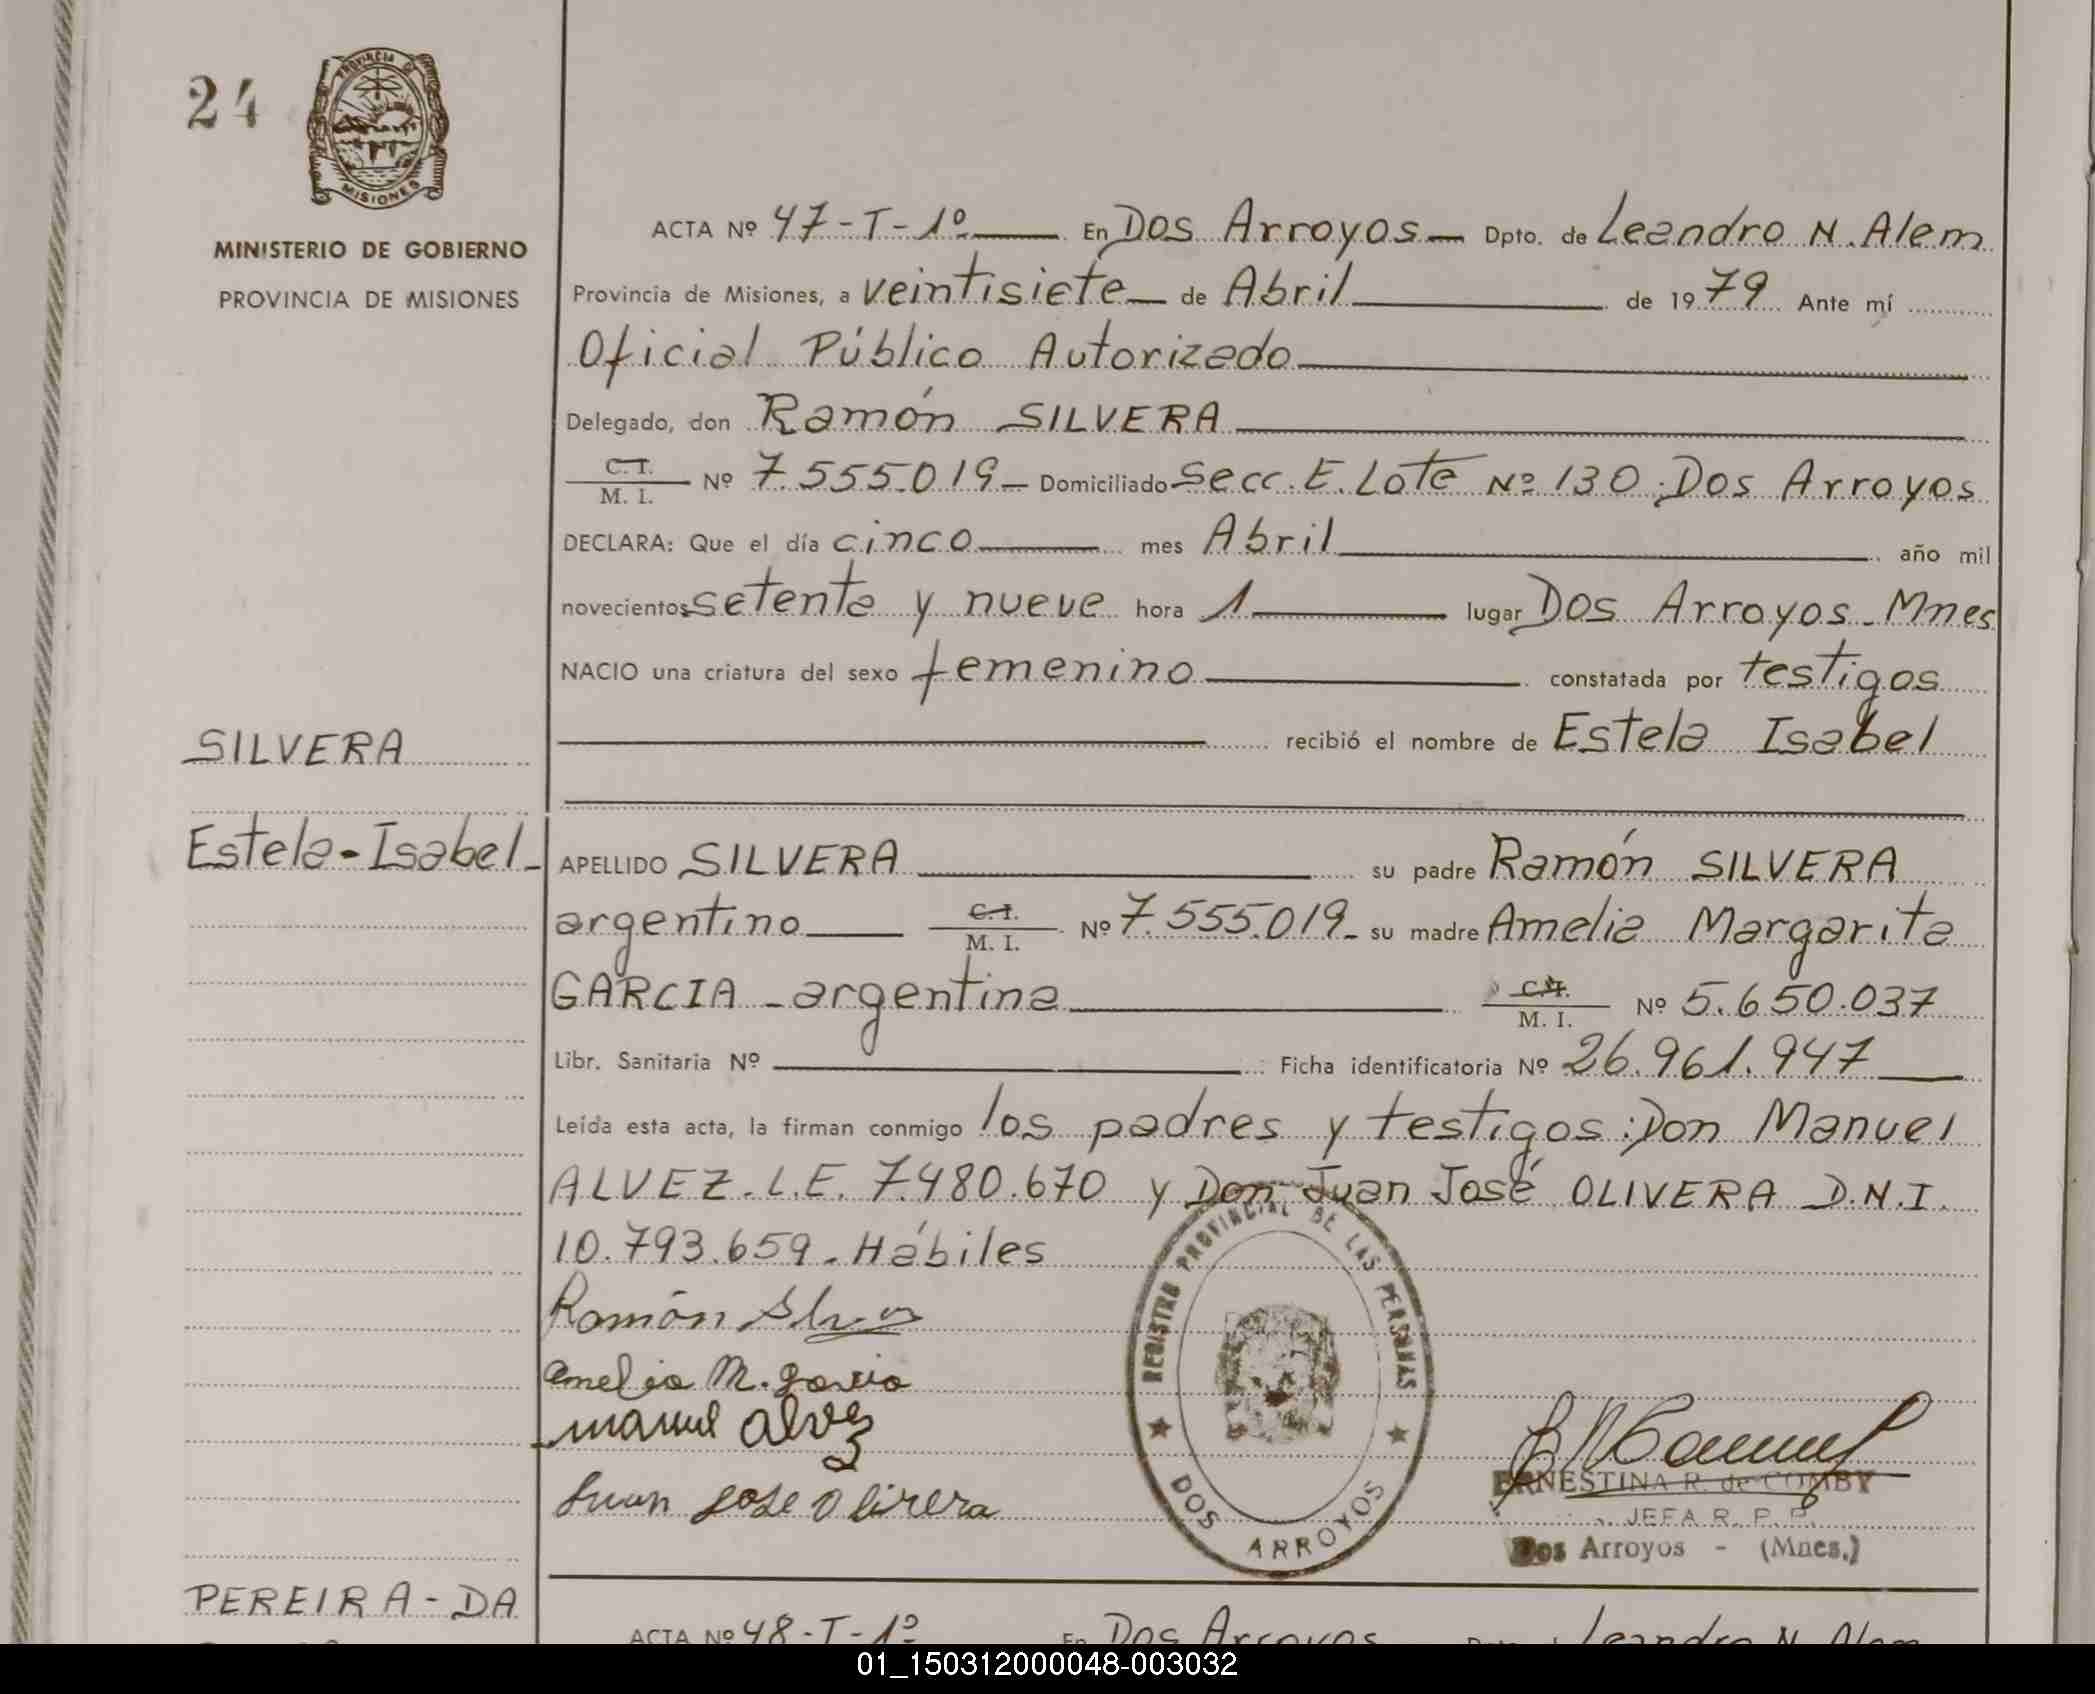 24
PROVINCIA DE
MISIONES
MINISTERIO DE GOBIERNO
PROVINCIA DE MISIONES
ACTA Nº 47-T-1º En Dos Arroyos Dpto. de Leandro N. Alem
Provincia de Misiones, a veintisiete de Abril de 1979 Ante mí
Oficial Público Autorizado
Delegado, don Ramón SILVERA
C.I.
M. I. Nº 7.555.019 Domiciliado Secc. E. Lote Nº 130. Dos Arroyos
DECLARA: Que el día cinco mes Abril año mil
novecientos setenta y nueve hora 1 lugar Dos Arroyos - Mnes
NACIO una criatura del sexo femenino constatada por testigos
recibió el nombre de Estela Isabel
SILVERA
Estela-Isabel
APELLIDO SILVERA su padre Ramón SILVERA
argentino C.I.
M. I. Nº 7.555.019 su madre Amelia Margarita
GARCIA - argentina C.I.
M. I. Nº 5.650.037
Libr. Sanitaria Nº Ficha identificatoria Nº 26.961.947
Leída esta acta, la firman conmigo los padres y testigos: Don Manuel
ALVEZ. L.E. 7.480.670 y Don Juan José OLIVERA D.N.I.
10.793.659. Hábiles
Ramón
Amelia M. Garcia
manuel alvez
Juan Jose Olivera
REGISTRO PROVINCIAL DE LAS PERSONAS
DOS ARROYOS
ERNESTINA R. de COMBY
JEFA R. P. P.
Dos Arroyos - (Mnes.)
PEREIRA-DA
ACTA Nº 48-T-1º En Dos Arroyos Leandro N. Alem
01_150312000048-003032